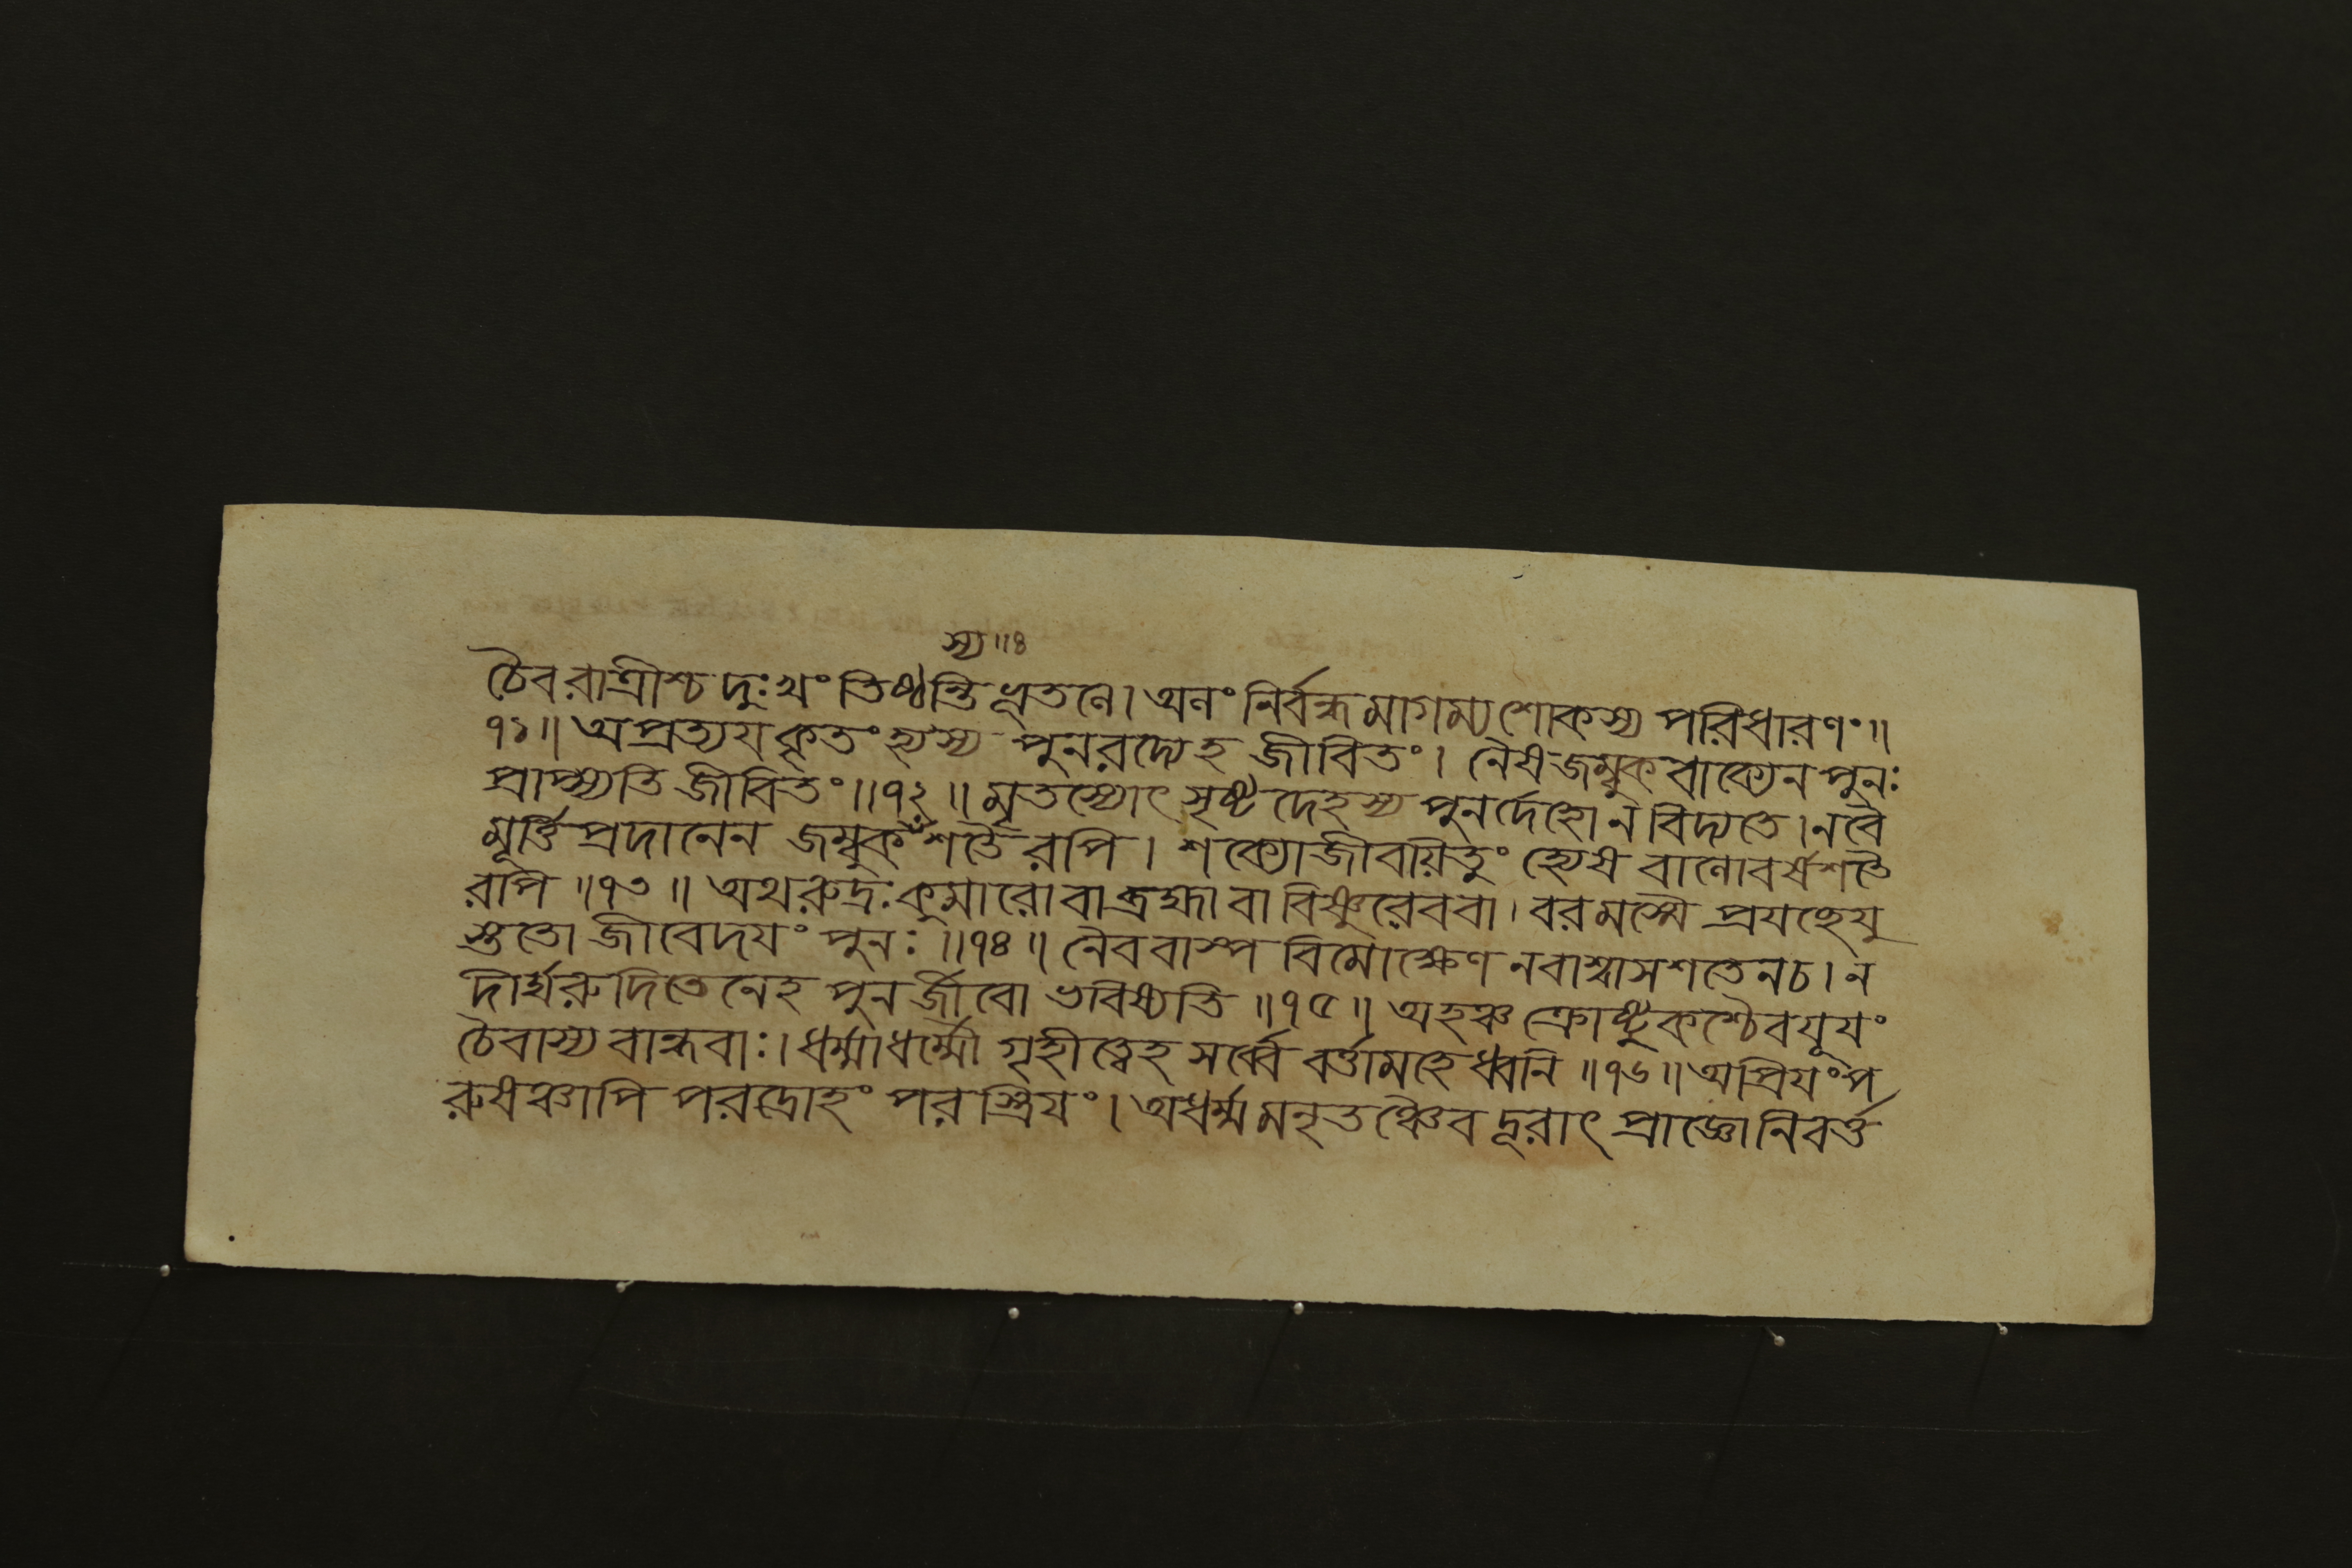 স্য॥৪
চৈবরাত্রীশ্চদুঃখং তিষ্ঠন্তিধূতনে। অনং নির্বন্ধমাগম্যশোকস্য পরিধারণং॥
৭১॥ অপ্রত্যযকৃতংহ্যস্য পুনরদ্যেহ জীবিতং। নৈষজম্বুকবাক্যেনপুনঃ
প্রাপ্স্যতি জীবিতং॥৭২॥ মৃতস্যোৎসৃষ্টদেহস্য পুনর্দেহোনবিদ্যতে।নবৈ
মূর্ত্তিপ্রদানেন জম্বুকশতৈরপি। শক্যোজীবয়িতুং হ্যেষ বানোবর্ষশতৈ
রপি॥৭৩॥ অথরুদ্রঃকুমারোবাব্রহ্মাবাবিষ্ণুরেববা।বরমস্মৈ প্রযছেযু
স্ততো জীবেদযং পুনঃ॥৭৪॥ নৈববাস্পবিমোক্ষেণনবাশ্বাসশতেনচ।ন
দীর্ঘরুদিতেনেহপুনর্জীবো ভবিষ্যতি॥৭৫॥ অহঞ্চক্রোষ্টুকশ্চৈবযূযং
চৈবাস্যবান্ধবাঃ।ধর্ম্মাধর্ম্মৌগৃহীত্বেহসর্ব্বেবর্ত্তামহেধ্বনি॥৭৬॥অপ্রিযংপ
রুষঞ্চাপি পরদ্রোহং পরস্ত্রিযং।অধর্ম্মমনৃতঞ্চৈবদূরাৎপ্রাজ্ঞোনিবর্ত্ত